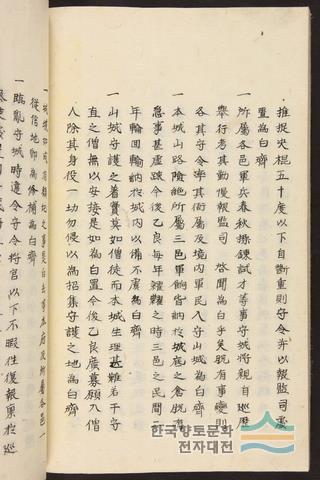 推捉决棍五十度以下自斷重則守令弁以報監司處
置為白齊
一所屬各邑軍兵春秋操鍊試才等事守城將親自巡歷
舉行者其勤慢報監司 啓聞為白乎矣脱有事變則
各其守令率其衙屬及境内軍民入守山城為白齊
一本城山路險絶所屬三邑軍餉皆納於城底之倉脱有
急事甚虛踈今後乙良每年糶糴之時三邑之民間
年輪回輸納於城内以備不虞為白齊
一山城守護之着實莫如僧徒而本城生理甚難若干守
直之僧無以安接是如為白置今後乙良廣募願入僧
人除其身役一切勿侵以為招集守護之地為白齊
從信地即為修補為白齊
一臨亂守城時違令守令將官以下不暇往復報禀於巡
한국향토문화
전자대전